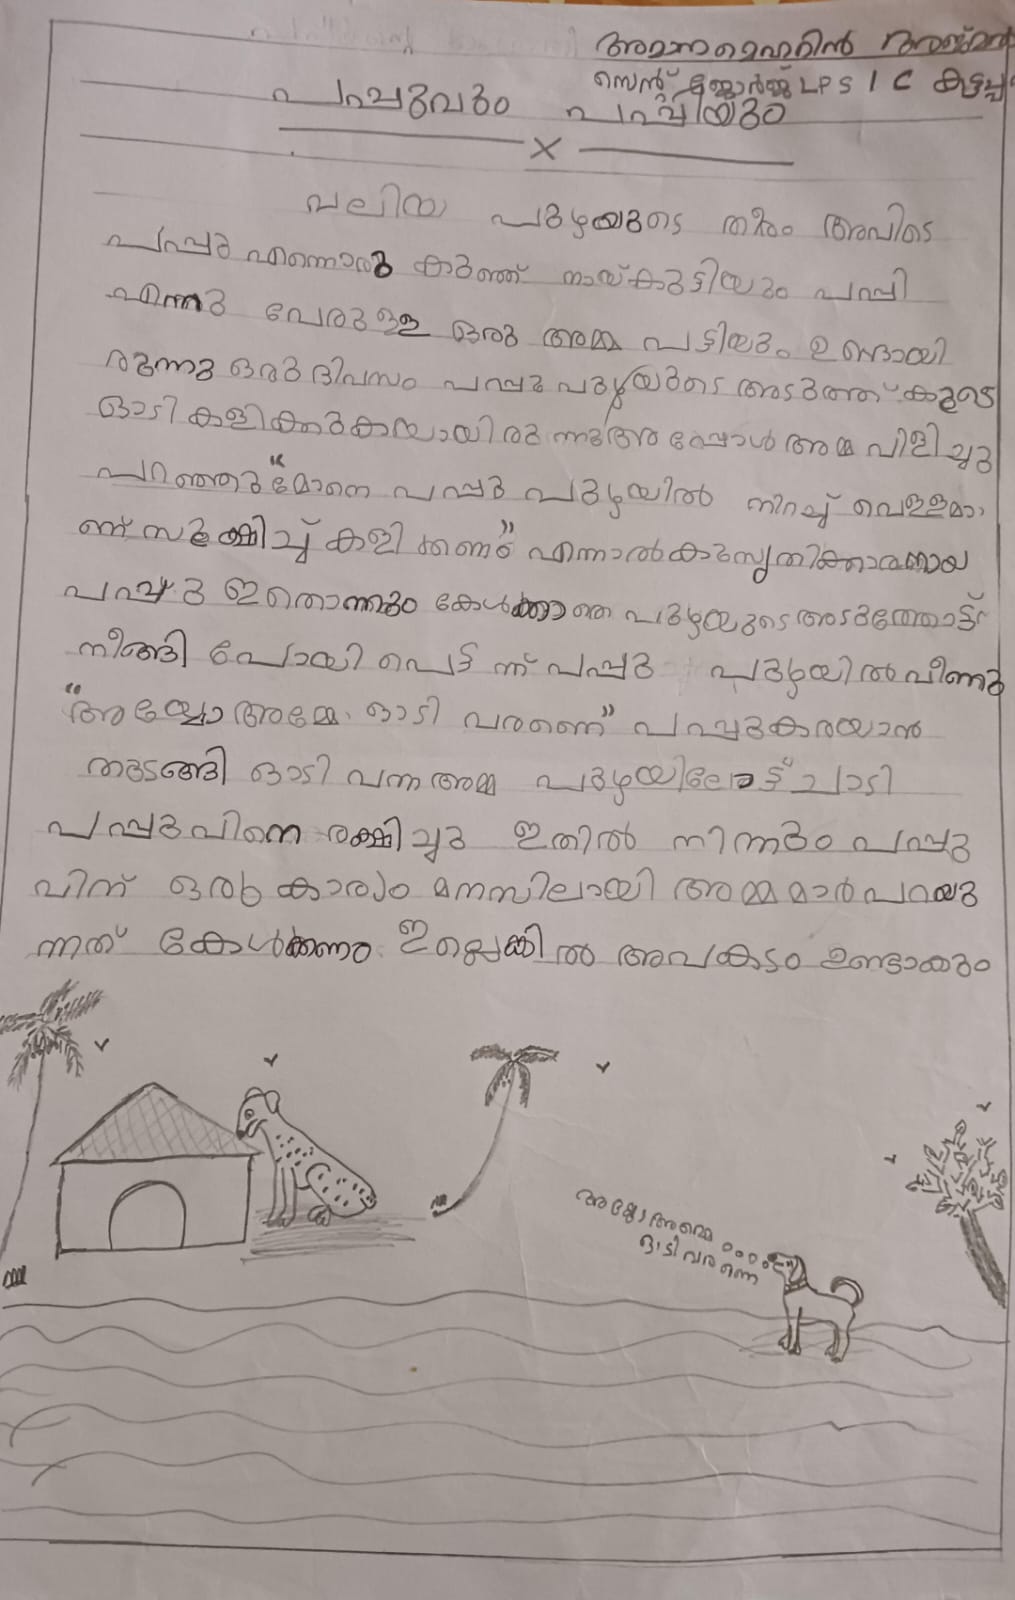 അമാന മെഹറിൻ
സെൻ്റ് ജോർജ്ജ് LPS I C കട്ടപ്പ
പപ്പുവും പപ്പിയും
X
വലിയ പുഴയുടെ തീരം അവിടെ
പപ്പു എന്നൊരു കുഞ്ഞ് നായ്കുട്ടിയും പപ്പി
എന്നു പേരുള്ള ഒരു അമ്മ പട്ടിയും ഉണ്ടായി
രുന്നു ഒരു ദിവസം പപ്പു പുഴയുടെ അടുത്ത് കൂടെ
ഓടി കളിക്കുകയായിരുന്നു അപ്പോൾ അമ്മ വിളിച്ചു
പറഞ്ഞു "മോനെ പപ്പു പുഴയിൽ നിറച്ച് വെള്ളമാ
ണ് സൂക്ഷിച്ച് കളിക്കണേ" എന്നാൽ കുസൃതിക്കാരനായ
പപ്പു ഇതൊന്നും കേൾക്കാതെ പുഴയുടെ അടുത്തോട്ട്
നീങ്ങി പോയി പെട്ടന്ന് പപ്പു പുഴയിൽ വീണു
"അയ്യോ അമ്മേ ഓടി വരണെ" പപ്പു കരയാൻ
തുടങ്ങി ഓടി വന്ന അമ്മ പുഴയിലോട്ട് ചാടി
പപ്പുവിനെ രക്ഷിച്ചു ഇതിൽ നിന്നും പപ്പു
വിന് ഒരു കാര്യം മനസിലായി അമ്മമാർ പറയു
ന്നത് കേൾക്കണം ഇല്ലെങ്കിൽ അപകടം ഉണ്ടാകും
അയ്യോ അമ്മെ
ഓടി വരണെ